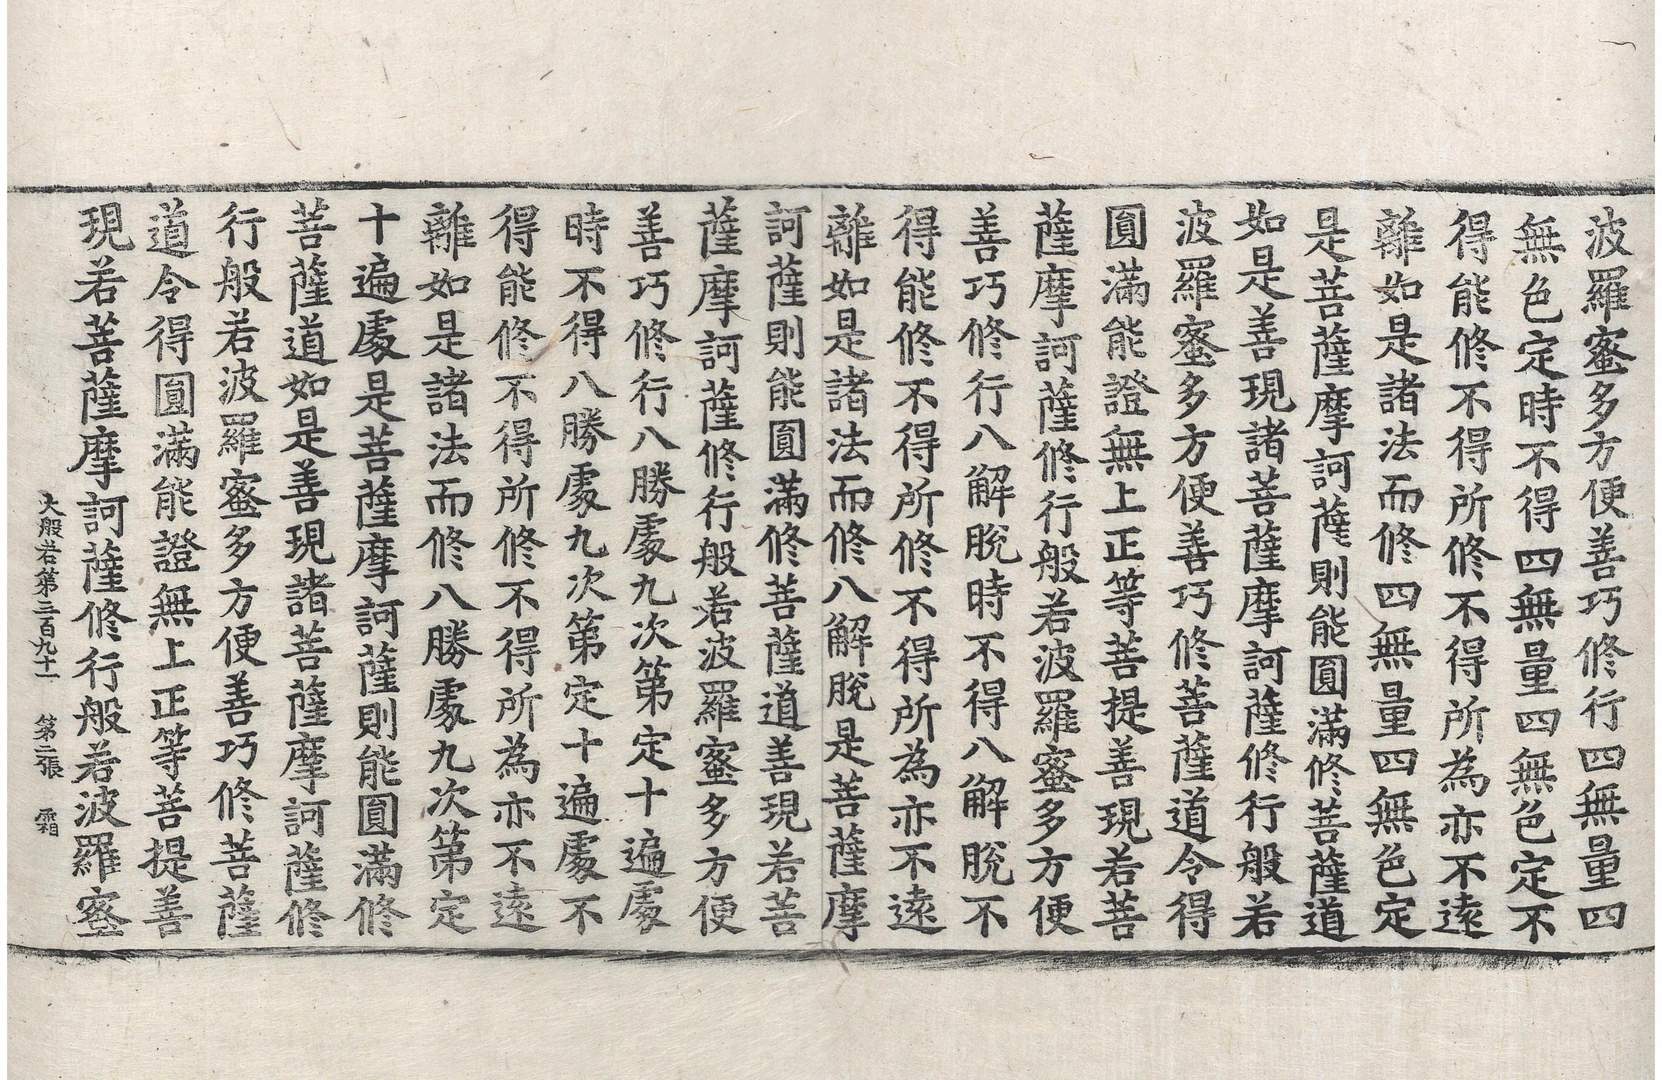 波羅蜜多方便善巧修行四無量四
無色定時不得四無量四無色定不
得能修不得所修不得所為亦不遠
離如是諸法而修四無量四無色定
是菩薩摩訶薩則能圓滿修菩薩道
如是善現諸菩薩摩訶薩修行般若
波羅蜜多方便善巧修菩薩道令得
圓滿能證無上正等菩提善現若菩
薩摩訶薩修行般若波羅蜜多方便
善巧修行八解脫時不得八解脫不
得能修不得所修不得所為亦不遠
離如是諸法而修八解脫是菩薩摩
訶薩則能圓滿修菩薩道善現若菩
薩摩訶薩修行般若波羅蜜多方便
善巧修行八勝處九次第定十遍處
時不得八勝處九次第定十遍處不
得能修不得所修不得所為亦不遠
離如是諸法而修八勝處九次第定
十遍處是菩薩摩訶薩則能圓滿修
菩薩道如是善現諸菩薩摩訶薩修
行般若波羅蜜多方便善巧修菩薩
道令得圓滿能證無上正等菩提善
現若菩薩摩訶薩修行般若波羅蜜
大般若第三百九十一 第二張 霜